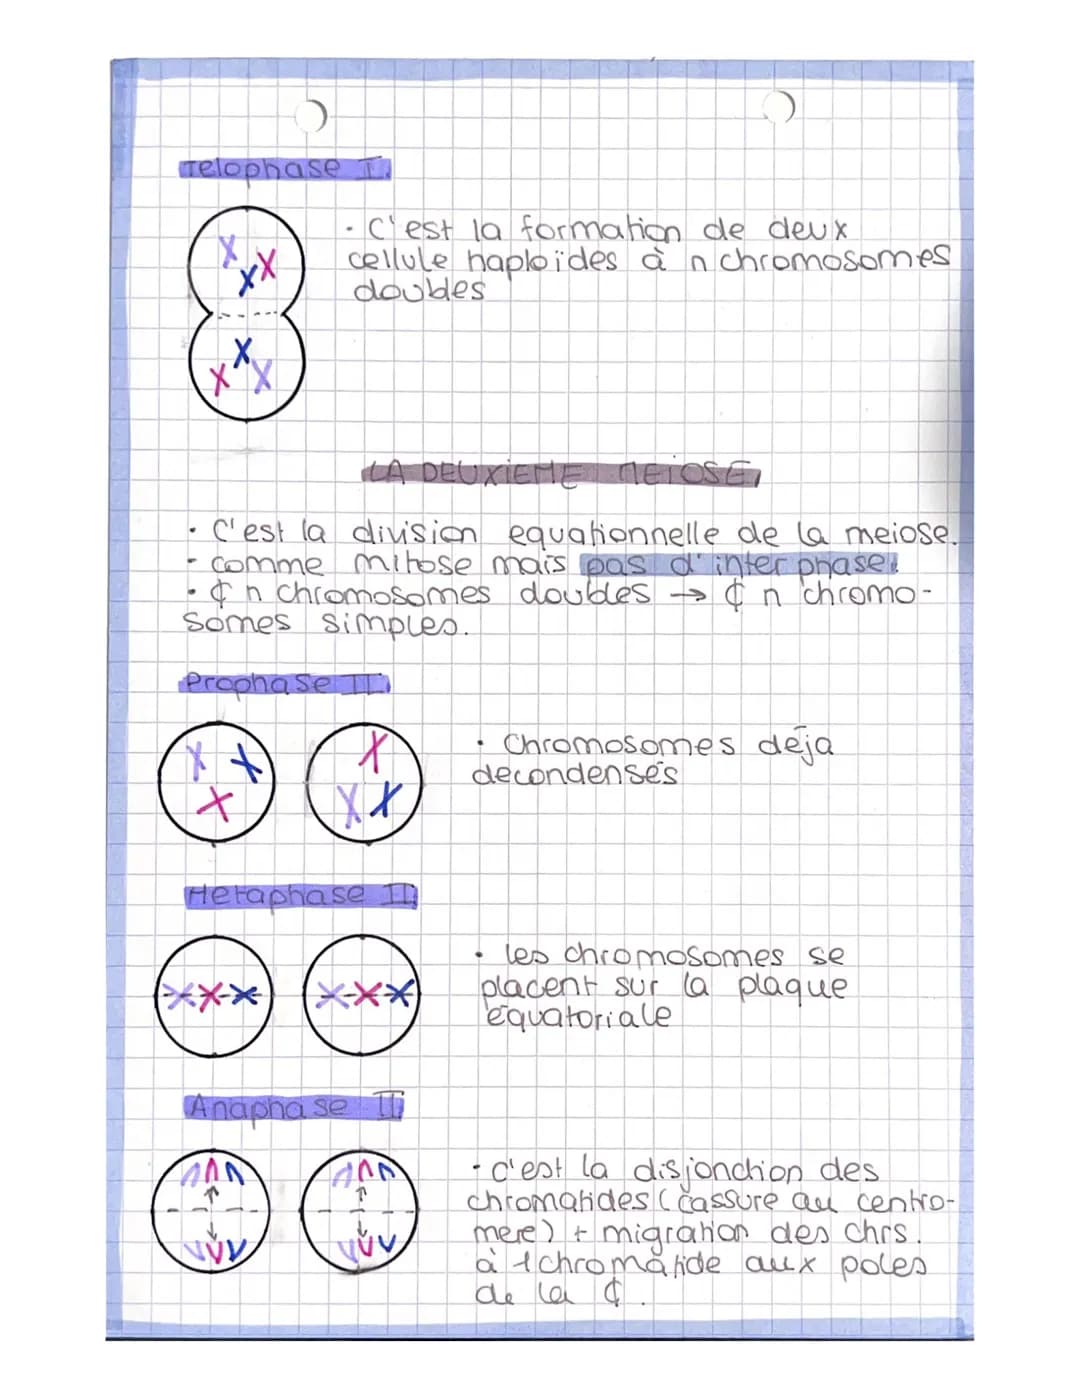 Telophase I.
· C'est la formation de deux
cellule haploïdes à n chromosomes
doubles
LA DEUXIEME MEIOSE,
· C'est la division equationnelle de la meiose.
- comme mitose mais pas d'interphase.
· ₵ n chromosomes doubles → ₵ n chromo-
somes simples.
Prophase II
· Chromosomes déja
decondensés
Metaphase II
· les chromosomes se
placent sur la plaque
équatoriale
Anaphase II
· c'est la disjonction des
chromatides (cassure au centro-
mere) + migration des chrs.
à 1 chromatide aux poles
de la ₵.